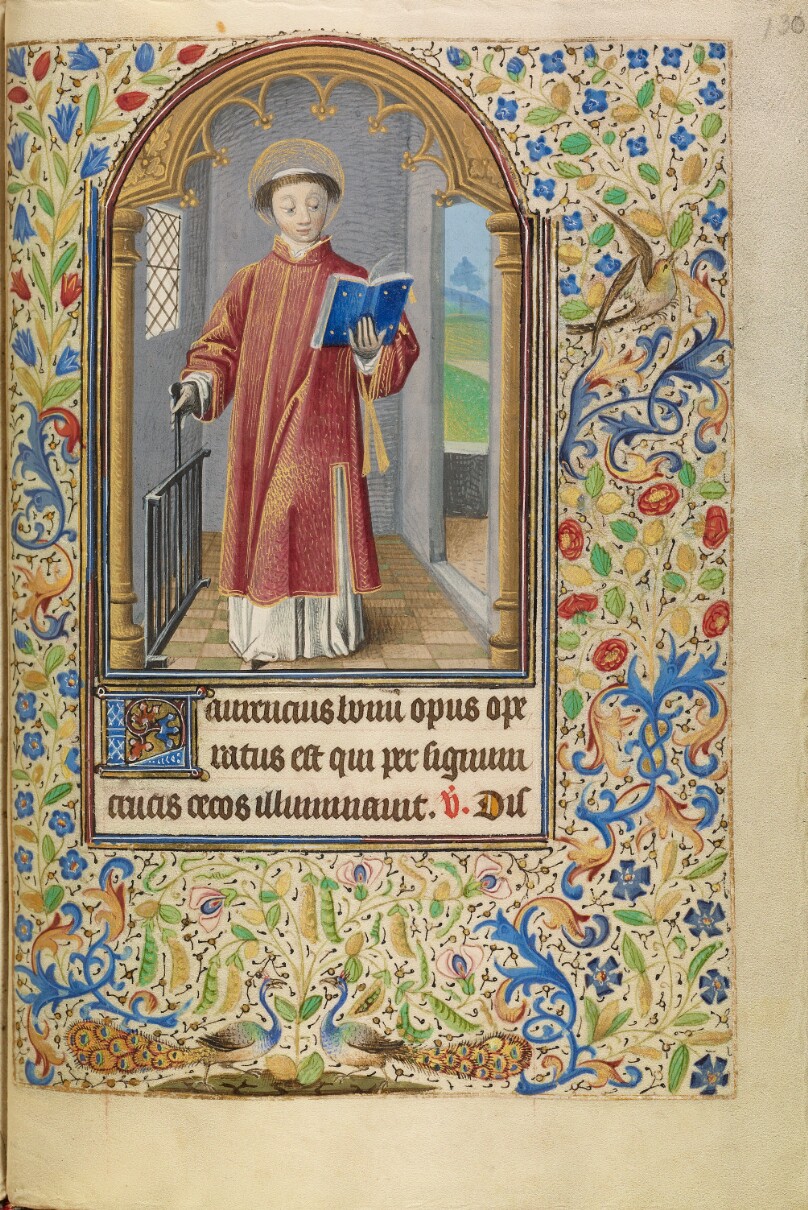 130
Laurencius bonū opus ope
ratus est qui per signum
crucis cecos illuminauit. V̇. Dis